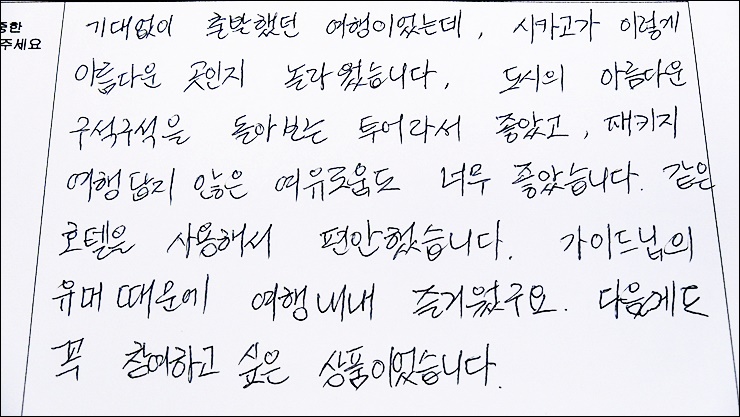 중한
주세요
기대없이 출발했던 여행이었는데, 시카고가 이렇게
아름다운 곳인지 놀라웠습니다. 도시의 아름다운
구석구석을 돌아보는 투어라서 좋았고, 패키지
여행답지 않은 여유로움도 너무 좋았습니다. 같은
호텔을 사용해서 편안했습니다. 가이드님의
유머 때문에 여행내내 즐거웠구요. 다음에도
꼭 참여하고 싶은 상품이었습니다.